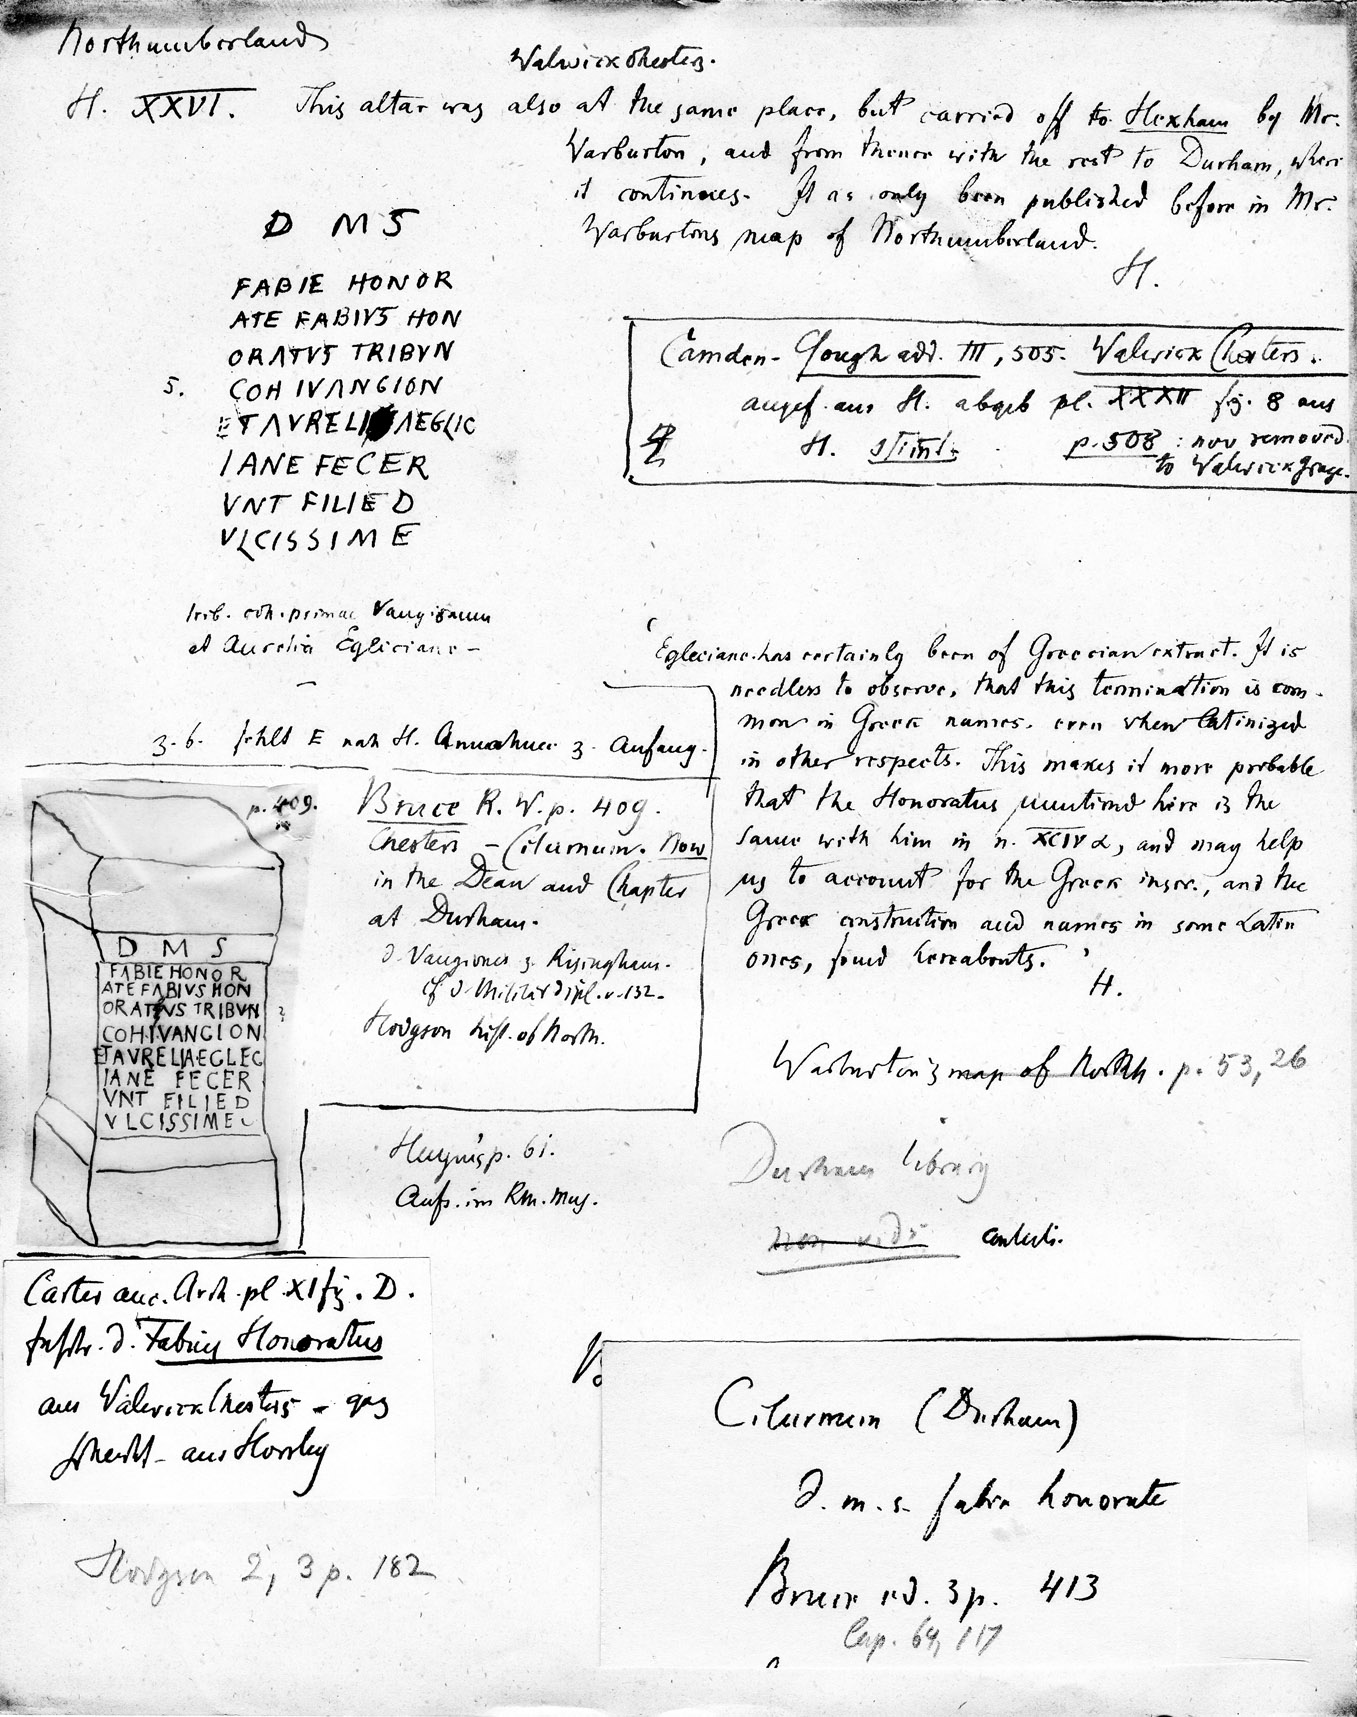 Northumberland
Walwick Chesters.
H. XXVI. This altar was also at the same place, but carried off to Hexham by Mr.
Warburton, and from thence with the rest to Durham, where
it continues. It as only been published before in Mr.
Warburtons map of Northumberland.
H.
D M S
FABIE HONOR
ATE FABIVS HON
ORATVS TRIBVN
5. COH IVANGION
ETAVRELI AEGLIC
IANE FECER
VNT FILIED
VLCISSIME
Camden-Gough add. III, 505. Walwick Chesters.
angef. aus H. abgeb pl. XXXII fig. 8 aus
H. stimt- p. 508 : now removed
to Walwick
trib. coh. primae Vangionum
et Aurelia Egliciane -
Z. 6. fehlt E nach H. Annahme z. Anfang.
'Egleciane has certainly been of Greecian extract. It is
needless to observe, that this termination is com-
mon in Greek names. even when latinized
in other respects. This makes it more probable
that the Honoratus mentiond here is the
same with him in n. XCIV α, and may help
us to account for the Greek inscr., and the
Greek construction and names in some Latin
ones, found hereabouts.'
H.
p. 409.
Bruce R. W. p. 409.
Chesters - Cilurnum. Now
in the Dean and Chapter
at Durham.
d. Vangiones z. Risingham.
cf d. Militärdipl. v. 132.
Hodgson hist. of North.
D M S
FABIE HONOR
ATE FABIVS HON
ORATVS TRIBVN ?
COH.I.VANGION
ETAVRELIAEGLEC
IANE FECER
VNT FILIED
VLCISSIME
Warburton's map of North. p. 53, 26
p. 61.
Durham library
non vidi contuli.
Carter anc. Arch. pl. XI fig. D.
Inschr. d. Fabius Honoratus
aus Walwick Chesters - gz
schlecht - aus Horsley
Cilurnum (Durham)
d. m. s. fabie honorate
Bruce ed. 3 p. 413
Lap. 64, 117
Hodgson 2, 3 p. 182